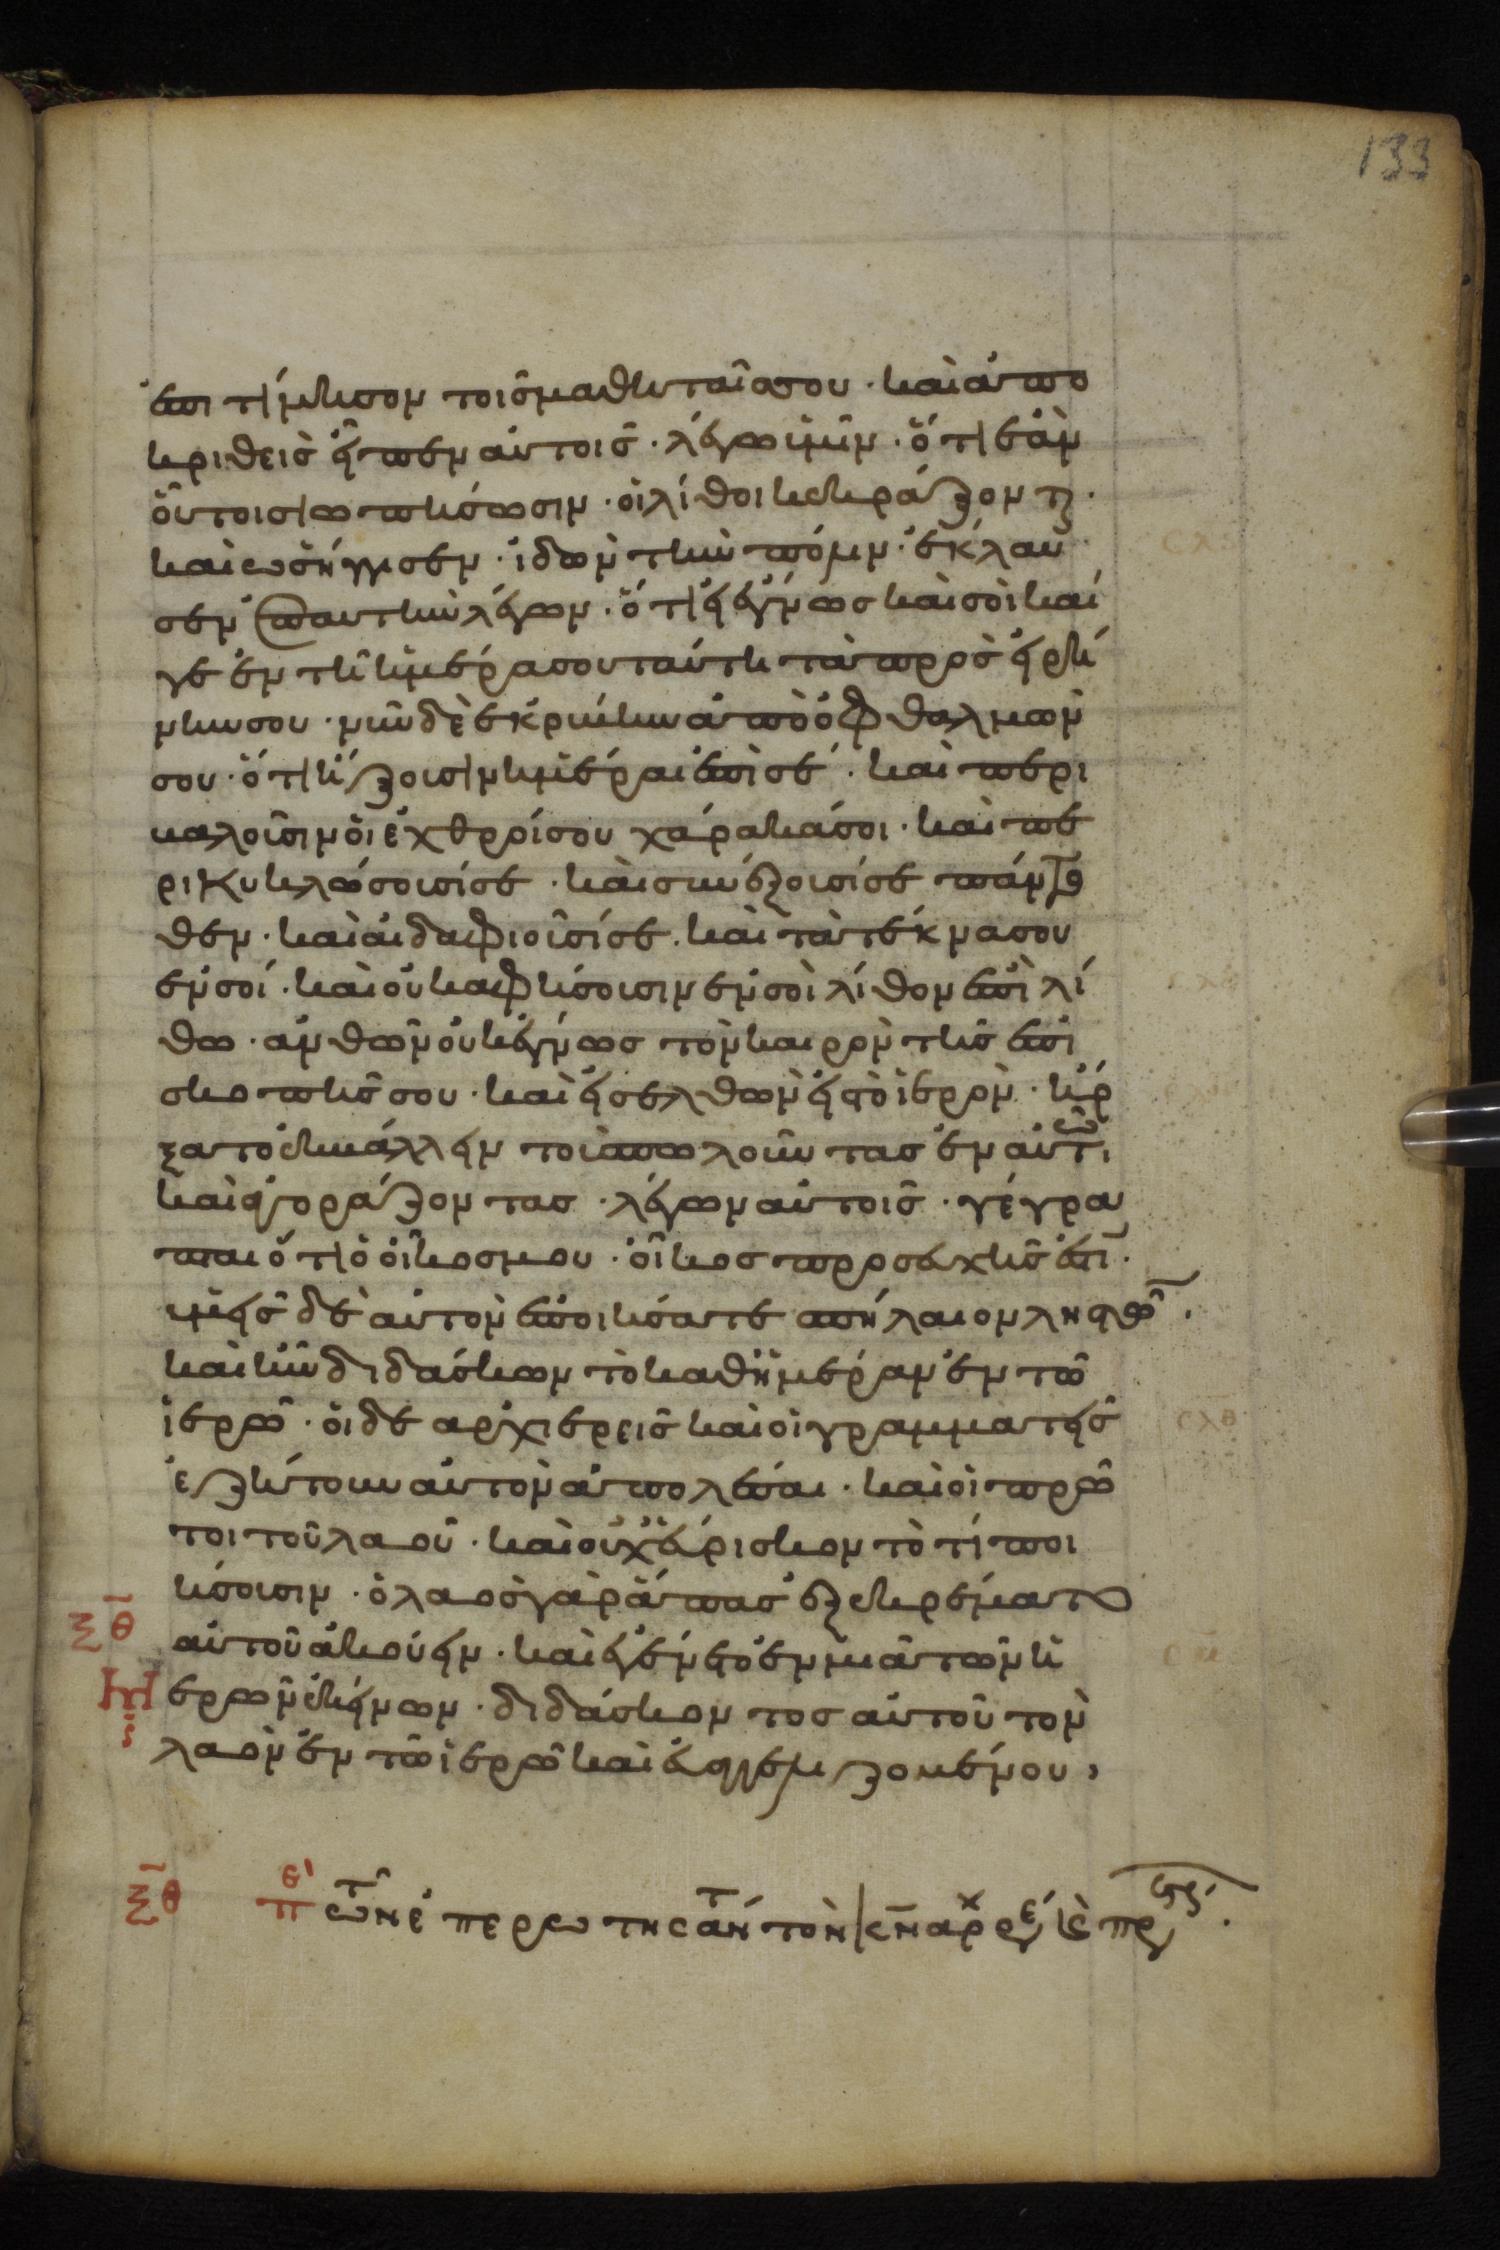 133
ἐπιτίμησον τοῖς μαθηταῖς σου · καὶ ἀπο
κριθεὶς εἶπεν αὐτοῖς · λέγω ὑμῖν · ὅτι ἐὰν
οὗτοι σιωπήσωσιν · οἱ λίθοι κεκράξονται ·
καὶ ὡς ἤγγισεν · ἰδὼν τὴν πόλιν · ἔκλαυ
σεν ἐπ αυτὴν λέγων · ὅτι εἰ ἔγνως καὶ σὺ καί
γε ἐν τῇ ἡμέρα σου ταύτη τὰ πρὸς εἰρή
νην σου · νῦν δὲ ἐκρύβην ἀπὸ ὀφθαλμῶν
σου · ὅτι ἥξουσιν ἡμέραι ἐπὶ σέ · καὶ περι
βαλοῦσιν οἱ ἐχθροί σου χάρακά σοι · καὶ πε
ρικυκλώσουσί σε · καὶ συνέξουσί σε πάντο
θεν · καὶ ἐδαφιοῦσί σε · καὶ τὰ τέκνα σου
ἐν σοί · καὶ οὐκ ἀφήσουσιν ἐν σοὶ λίθον ἐπὶ λί
θω · ἀνθῶν οὐκ ἔγνως τὸν καιρὸν τῆς ἐπι
σκοπῆς σου · καὶ εἰσελθὼν εἰς τὸ ἱερὸν · ἤρ
ξατο ἐκβάλλειν τοὺς πωλοῦντας ἐν αὐτῶ
καὶ ἀγοράζοντας · λέγων αὐτοῖς · γέγρα
πται ὅτι ὁ οἶκος μου · οἶκος προσευχῆς ἐστι ·
ὑμεῖς δὲ αὐτὸν ἐποιήσατε σπήλαιον ληστῶν ·
καὶ ἦν διδάσκων τὸ καθ ἡμέραν ἐν τῶ
ἱερῶ · οἱ δὲ αρχιερεῖς καὶ οἱ γραμματεῖς
ἐζήτουν αὐτὸν ἀπολέσαι · καὶ οἱ πρῶ
τοι τοῦ λαοῦ · καὶ οὐχ εὕρισκον τὸ τί ποι
ήσουσιν · ὁ λαὸς γὰρ ἅπας ἐξεκρέματο
αὐτοῦ ἀκούειν · καὶ ἐγένετο ἐν μιᾶ τῶν ἡμ
ερῶν ἐκείνων · διδάσκοντος αὐτοῦ τὸν
λαὸν ἐν τῶ ἱερῶ καὶ εὐαγγελιζομένου,
ξθ
ξθ